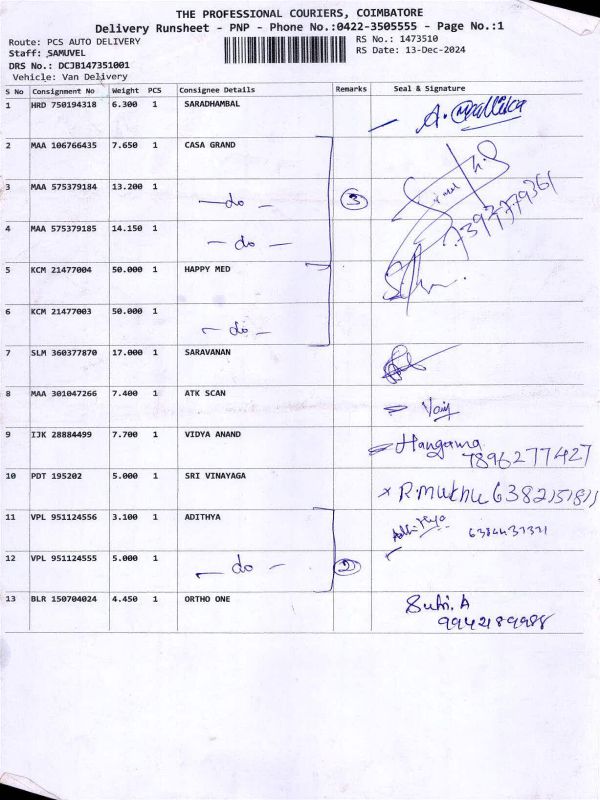 THE PROFESSIONAL COURIERS, COIMBATORE
Delivery Runsheet - PNP - Phone No.:0422-3505555 - Page No.:1
Route: PCS AUTO DELIVERY
RS No.: 1473510
Staff: SAMUVEL
RS Date: 13-Dec-2024
DRS No.: DCJB147351001
Vehicle: Van Delivery
S No Consignment No Weight PCS Consignee Details Remarks Seal & Signature
1 HRD 750194318 6.300 1 SARADHAMBAL A. Mallika
2 MAA 106766435 7.650 1 CASA GRAND
3 MAA 575379184 13.200 1 — do — 3 7397779361
4 MAA 575379185 14.150 1 — do —
5 KCM 21477004 50.000 1 HAPPY MED
6 KCM 21477003 50.000 1 — do —
7 SLM 360377870 17.000 1 SARAVANAN
8 MAA 301047266 7.400 1 ATK SCAN
9 IJK 28884499 7.700 1 VIDYA ANAND Hangama 7896277427
10 PDT 195202 5.000 1 SRI VINAYAGA x R.muthu
11 VPL 951124556 3.100 1 ADITHYA
12 VPL 951124555 5.000 1 — do — 2
13 BLR 150704024 4.450 1 ORTHO ONE
9942189988